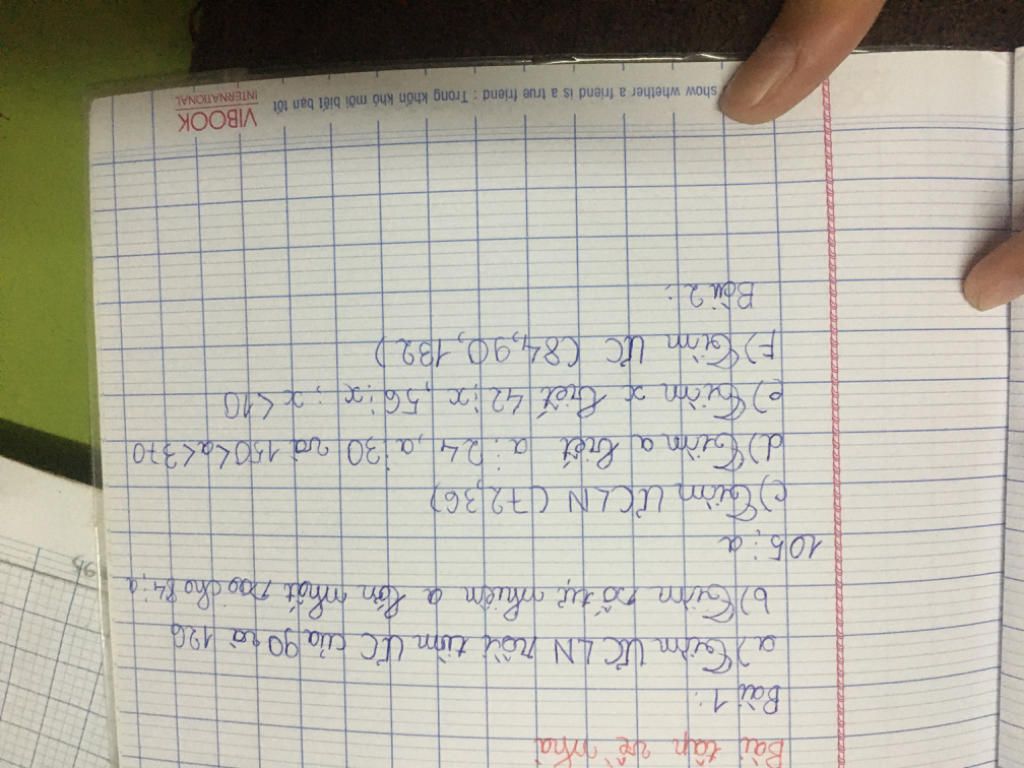 Bài tập về nhà
Bài 1:
a) Tìm ƯCLN rồi tìm ƯC của 90 và 126
b) Tìm số tự nhiên a lớn nhất sao cho 84⋮a
105⋮a
c) Tìm ƯCLN (72,36)
d) Tìm a biết a⋮24, a⋮30 và 150<a<370
e) Tìm x biết 42⋮x, 56⋮x; x<10
F) Tìm ƯC (84,90,132)
Bài 2:
show whether a friend is a true friend : Trong khốn khó mới biết bạn tốt
VIBOOK
INTERNATIONAL